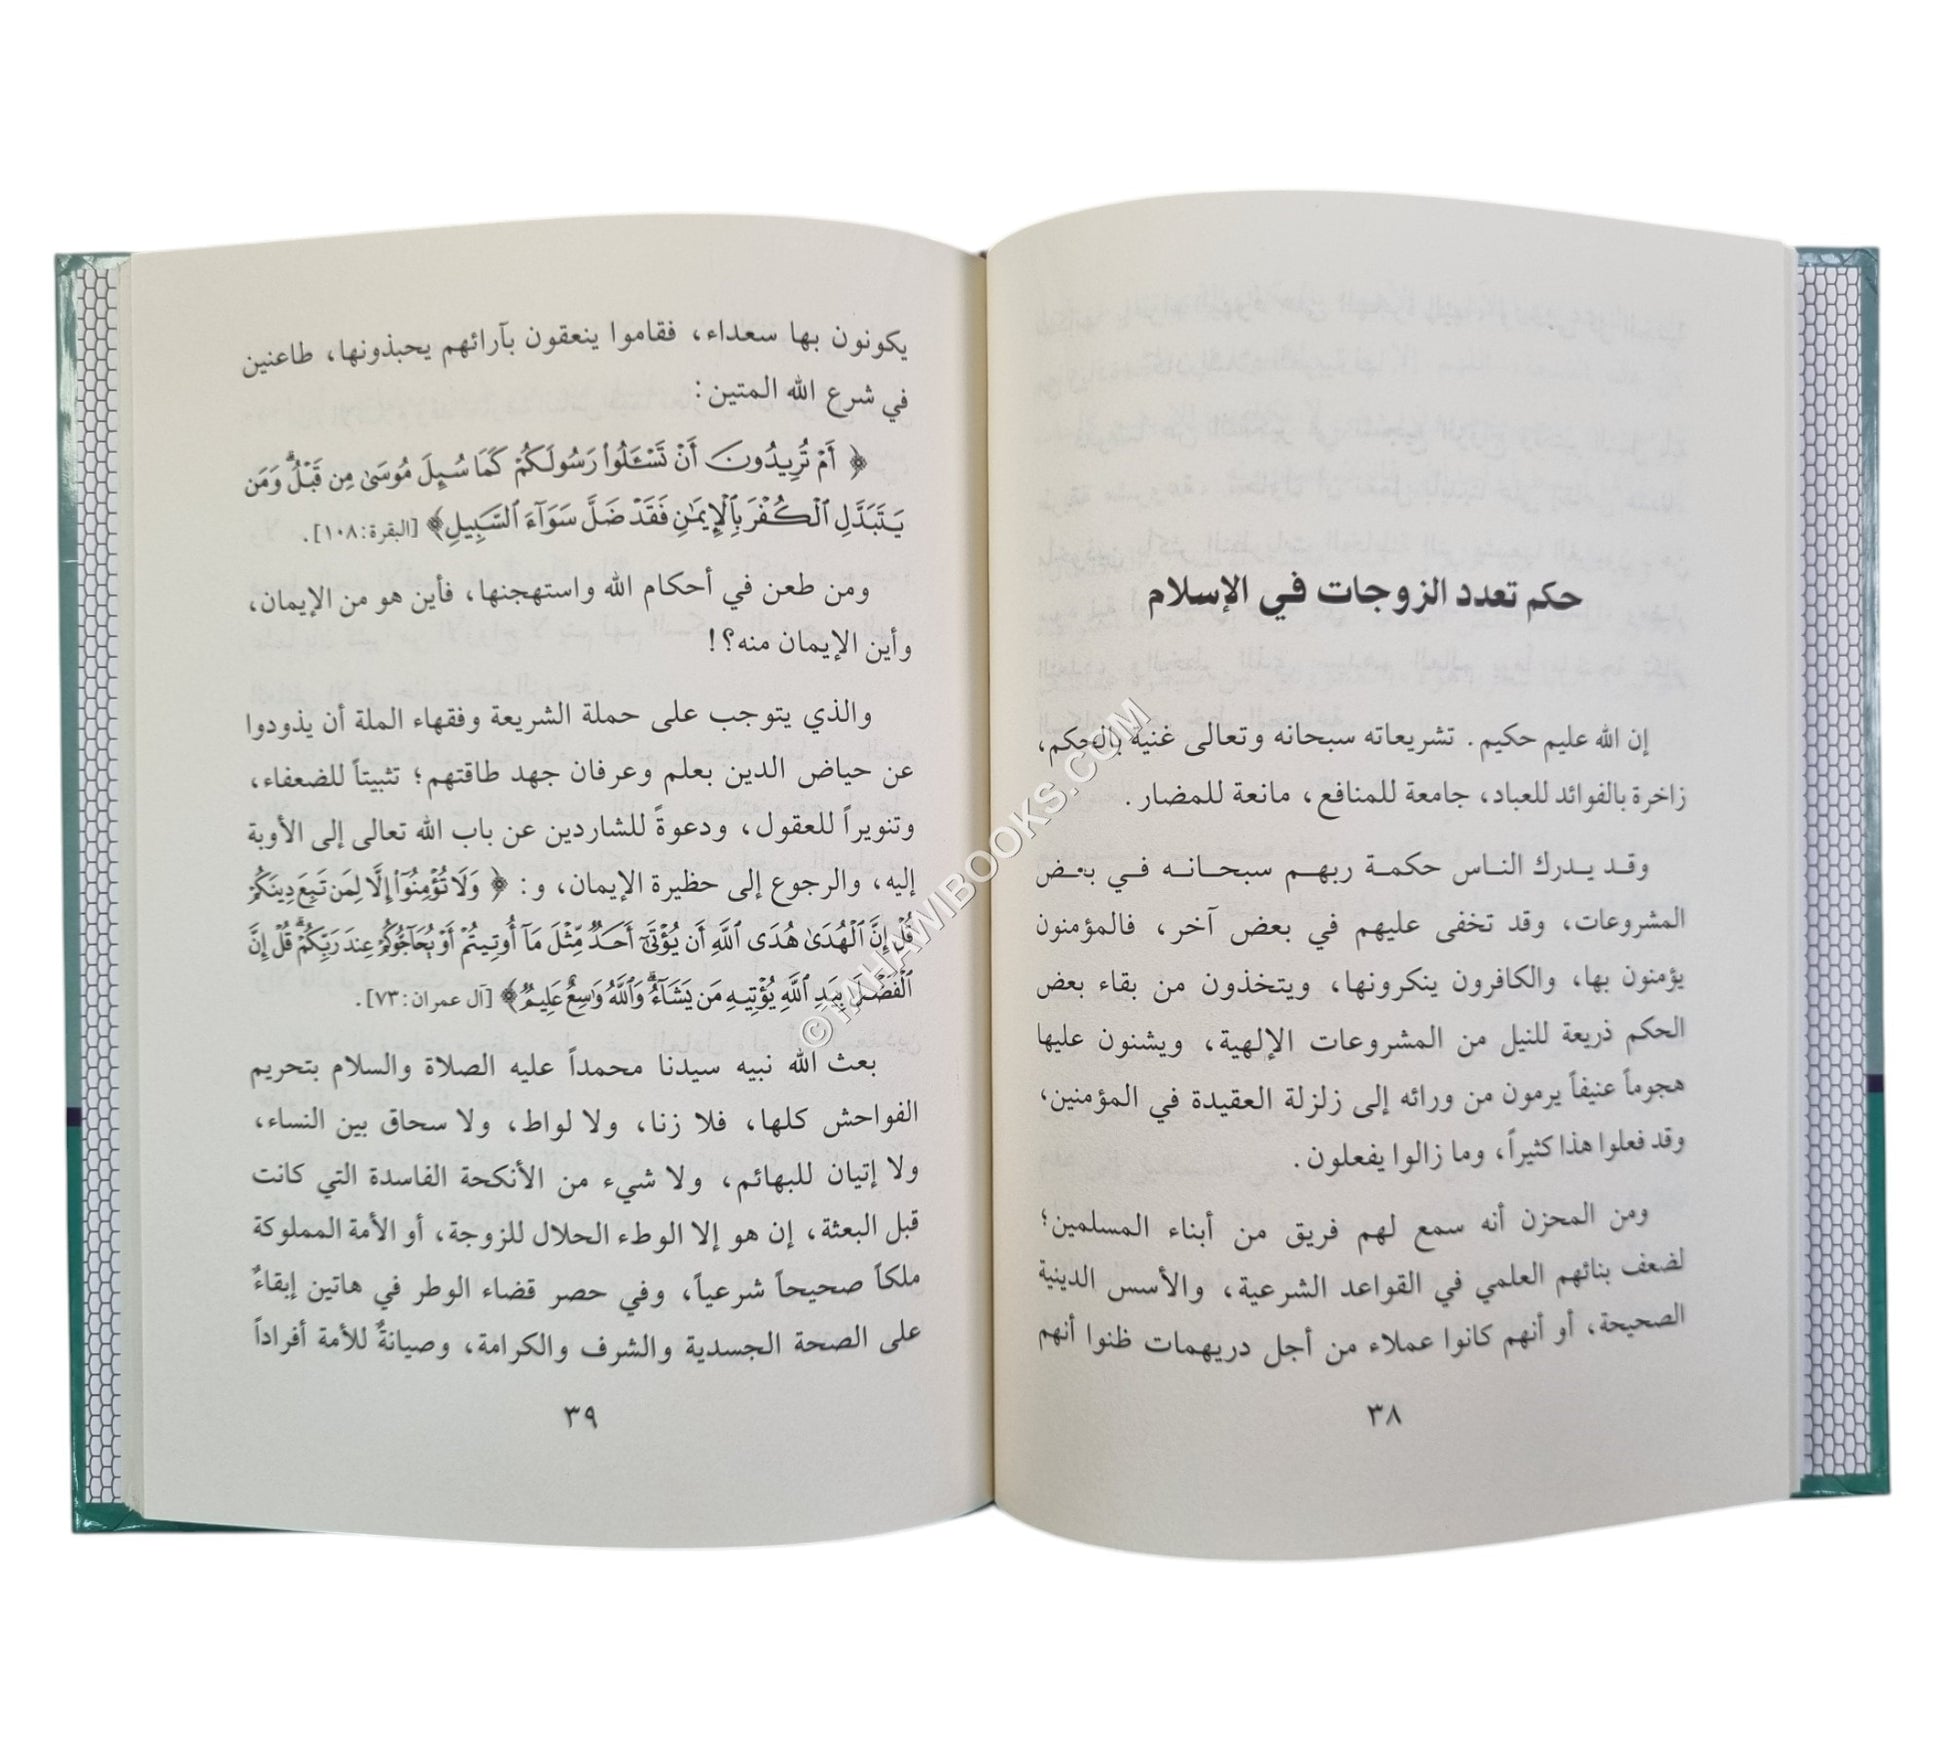 حكم تعدد الزوجات في الإسلام
إن الله عليم حكيم. تشريعاته سبحانه وتعالى غنية بالحكم،
زاخرة بالفوائد للعباد، جامعة للمنافع، مانعة للمضار.
وقد يدرك الناس حكمة ربهم سبحانه في بعض
المشروعات، وقد تخفى عليهم في بعض آخر، فالمؤمنون
يؤمنون بها، والكافرون ينكرونها، ويتخذون من بقاء بعض
الحكم ذريعة للنيل من المشروعات الإلهية، ويشنون عليها
هجوماً عنيفاً يرمون من ورائه إلى زلزلة العقيدة في المؤمنين،
وقد فعلوا هذا كثيراً، وما زالوا يفعلون.
ومن المحزن أنه سمع لهم فريق من أبناء المسلمين؛
لضعف بنائهم العلمي في القواعد الشرعية، والأسس الدينية
الصحيحة، أو أنهم كانوا عملاء من أجل دريهمات ظنوا أنهم
٣٨
يكونون بها سعداء، فقاموا ينعقون بآرائهم يحبذونها، طاعنين
في شرع الله المتين:
﴿أَمْ تُرِيدُونَ أَنْ تَسْـَٔلُوا۟ رَسُولَكُمْ كَمَا سُئِلَ مُوسَىٰ مِن قَبْلُ ۗ وَمَن
يَتَبَدَّلِ ٱلْكُفْرَ بِٱلْإِيمَٰنِ فَقَدْ ضَلَّ سَوَآءَ ٱلسَّبِيلِ﴾ [البقرة: ١٠٨].
ومن طعن في أحكام الله واستهجنها، فأين هو من الإيمان،
وأين الإيمان منه؟!
والذي يتوجب على حملة الشريعة وفقهاء الملة أن يذودوا
عن حياض الدين بعلم وعرفان جهد طاقتهم؛ تثبيتاً للضعفاء،
وتنويراً للعقول، ودعوةً للشاردين عن باب الله تعالى إلى الأوبة
إليه، والرجوع إلى حظيرة الإيمان، و: ﴿وَلَا تُؤْمِنُوٓا۟ إِلَّا لِمَن تَبِعَ دِينَكُمْ
قُلْ إِنَّ ٱلْهُدَىٰ هُدَى ٱللَّهِ أَن يُؤْتَىٰٓ أَحَدٌ مِّثْلَ مَآ أُوتِيتُمْ أَوْ يُحَآجُّوكُمْ عِندَ رَبِّكُمْ ۗ قُلْ إِنَّ
ٱلْفَضْلَ بِيَدِ ٱللَّهِ يُؤْتِيهِ مَن يَشَآءُ ۗ وَٱللَّهُ وَٰسِعٌ عَلِيمٌ﴾ [آل عمران: ٧٣].
بعث الله نبيه سيدنا محمداً عليه الصلاة والسلام بتحريم
الفواحش كلها، فلا زنا، ولا لواط، ولا سحاق بين النساء،
ولا إتيان للبهائم، ولا شيء من الأنكحة الفاسدة التي كانت
قبل البعثة، إن هو إلا الوطء الحلال للزوجة، أو الأمة المملوكة
ملكاً صحيحاً شرعياً، وفي حصر قضاء الوطر في هاتين إبقاءٌ
على الصحة الجسدية والشرف والكرامة، وصيانةٌ للأمة أفراداً
٣٩
© TAHAWIBOOKS.COM